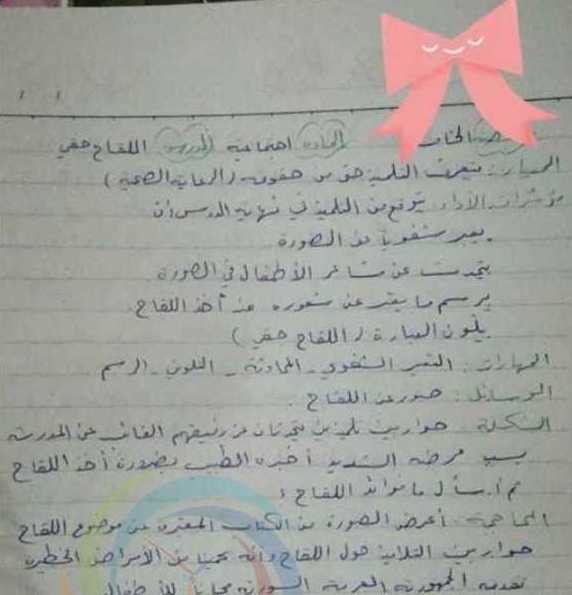 الخاد المادة اجتماعية الدرس اللقاح حقي
المعيار: يتعرف التلميذ حق من حقوقه (الرعاية الصحية)
مؤشرات الأداء: يتوقع من التلميذ في نهاية الدرس أن
يعبر شفوياً عن الصورة
يتحدث عن مشاعر الأطفال في الصورة
يرسم ما يعبر عن شعوره عند أخذ اللقاح.
يلون العبارة (اللقاح حقي)
المهارات: التعبير الشفوي - المحادثة - التلوين - الرسم
الوسائل: صور عن اللقاح
المشكلة: حوار بين تلميذين يتحدثان عن رفيقهم الغائب عن المدرسة
بسبب مرضه الشديد أخبره الطبيب بضرورة أخذ اللقاح
ثم أسأل ما فوائد اللقاح؟
المحاجمة: أعرض الصورة من الكتاب المعبرة عن موضوع اللقاح
حوار بين التلاميذ حول اللقاح وأنه يحمينا من الأمراض الخطيرة
تقدمه الجمهورية العربية السورية مجاناً للأطفال